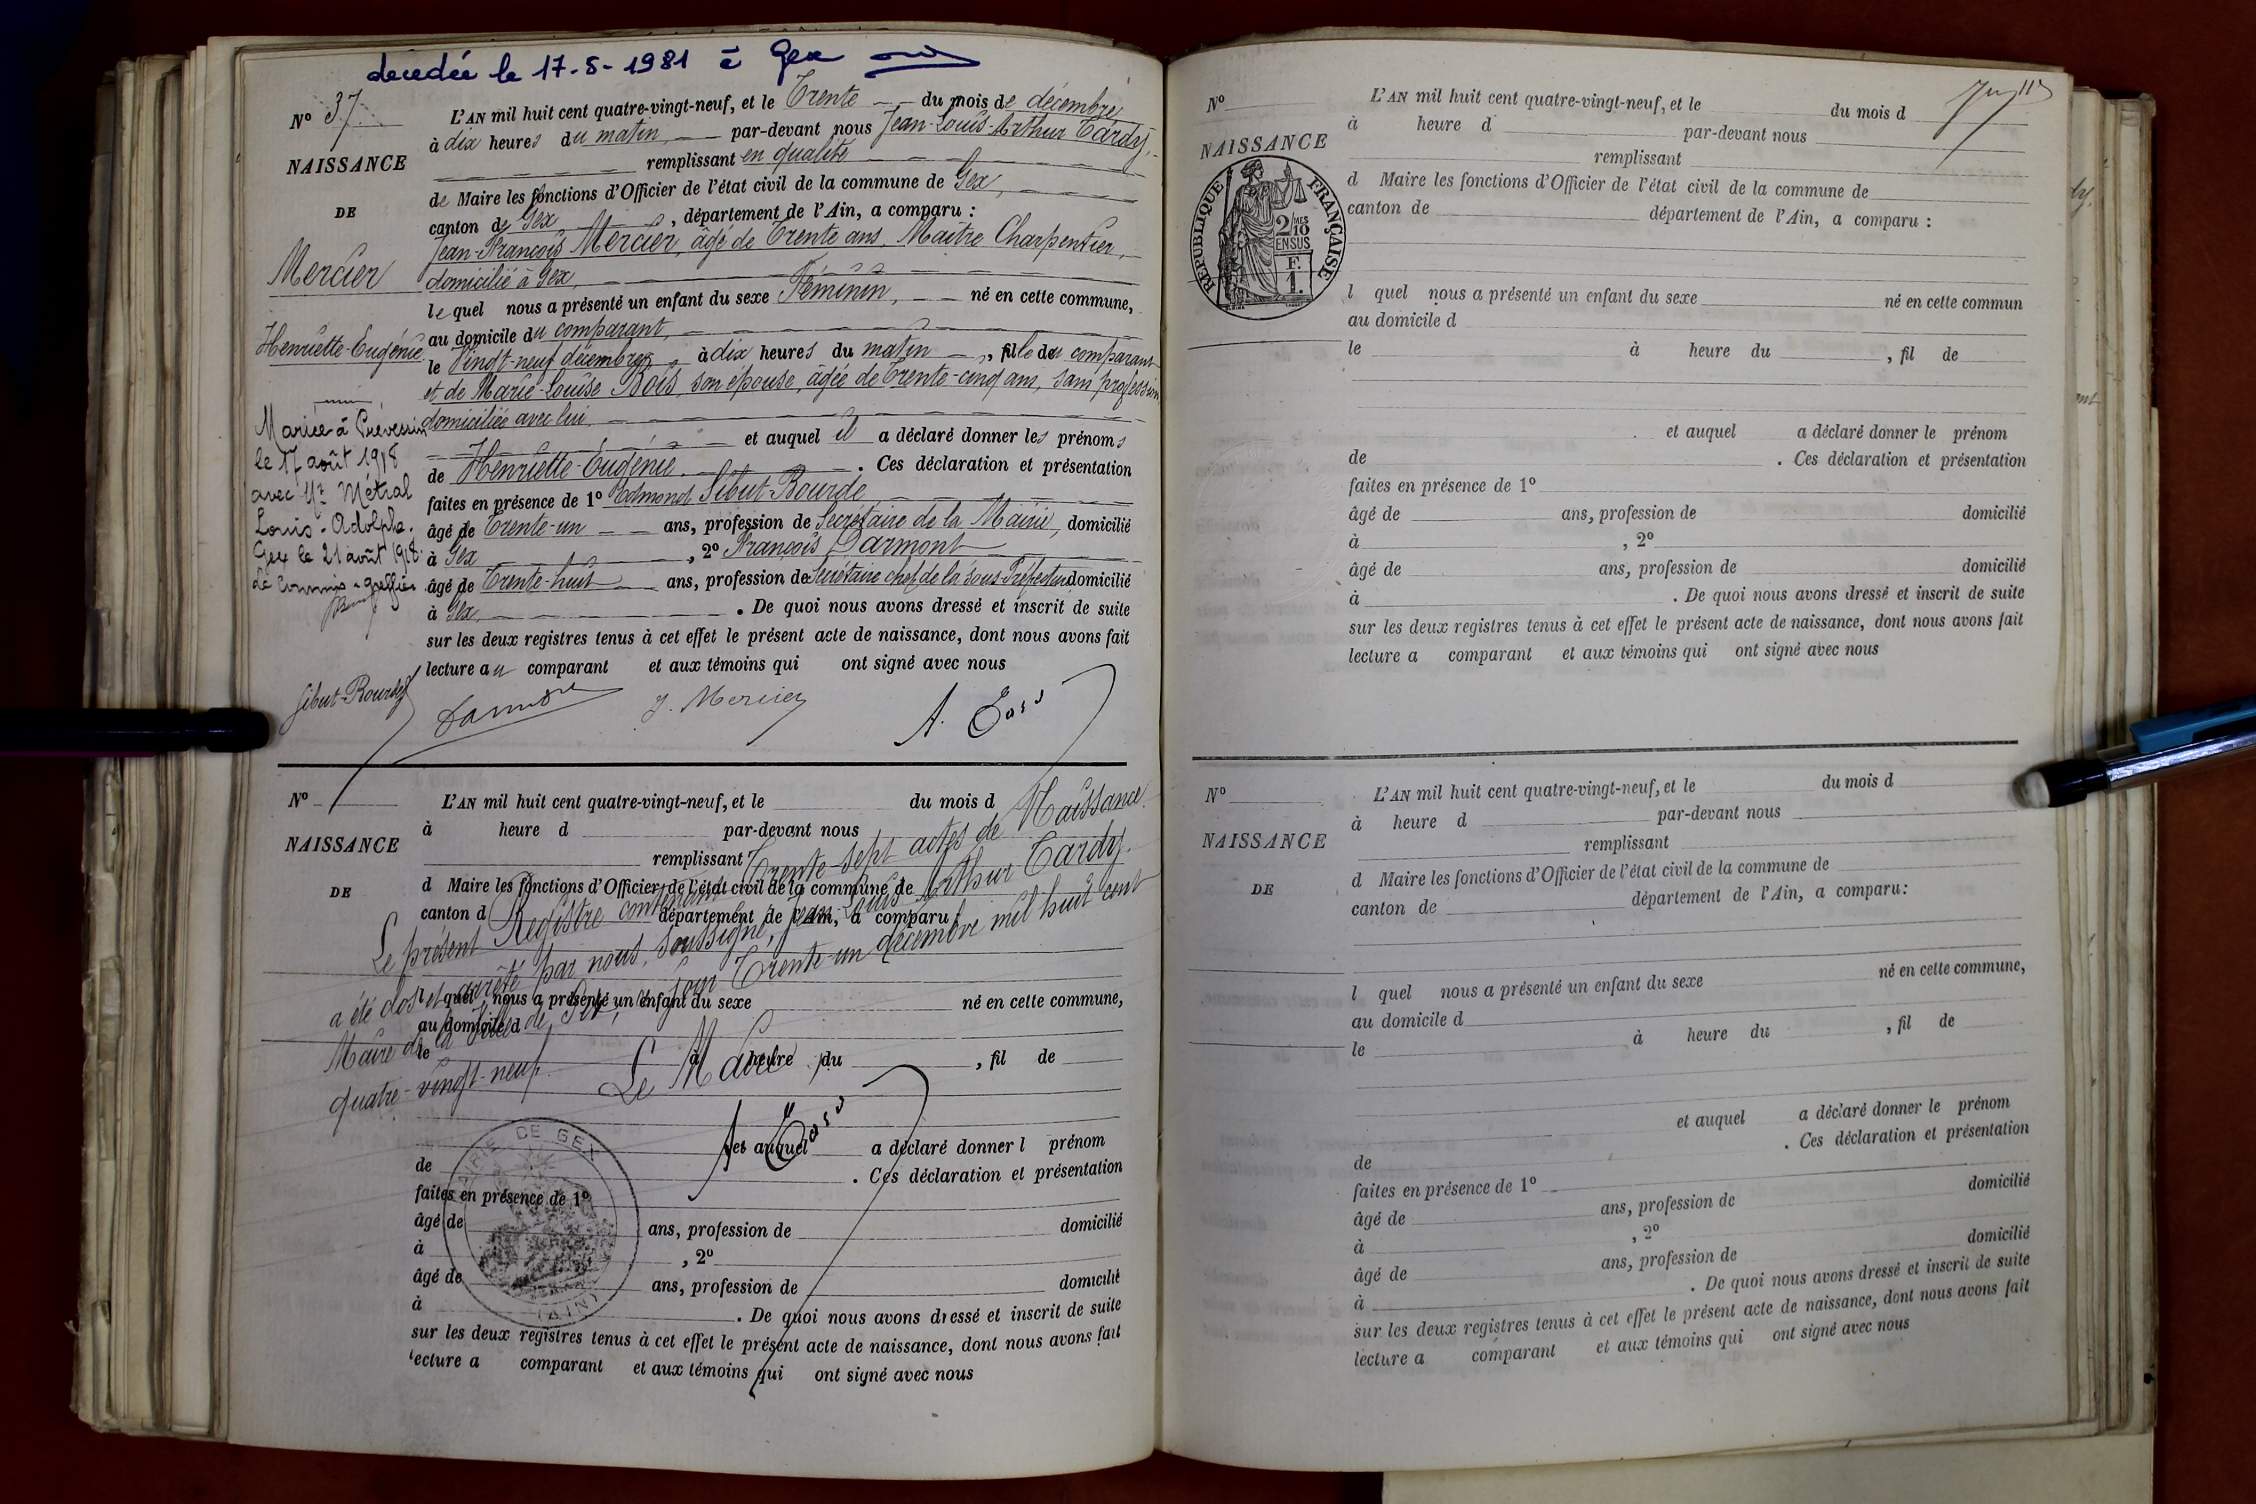 décédée le 17-5-1981 à Gex
N° 37
NAISSANCE
DE
Mercier
Henriette-Eugénie
Mariée à Prévessin
le 17 août 1918
avec Mr Métral
Louis-Adolphe.
Gex le 21 août 1918.
Le Commis-greffier
L'AN mil huit cent quatre-vingt-neuf, et le Trente du mois de décembre
à dix heures du matin, par-devant nous Jean-Louis-Arthur Tardy,
remplissant en qualité
de Maire les fonctions d'Officier de l'état civil de la commune de Gex,
canton de Gex, département de l'Ain, a comparu :
Jean-François Mercier, âgé de Trente ans, Maître Charpentier,
domicilié à Gex,
lequel nous a présenté un enfant du sexe Féminin, né en cette commune,
au domicile du comparant,
le Vingt-neuf décembre à dix heures du matin, fille du comparant
et de Marie-Louise Bois, son épouse, âgée de Trente-cinq ans, sans profession
domiciliée avec lui,
et auquel il a déclaré donner les prénoms
de Henriette-Eugénie. Ces déclaration et présentation
faites en présence de 1° Edmond Sibut-Bourde
âgé de Trente-un ans, profession de Secrétaire de la Mairie, domicilié
à Gex, 2° François Darmont
âgé de Trente-huit ans, profession de Secrétaire chef de la sous-Préfecture domicilié
à Gex, . De quoi nous avons dressé et inscrit de suite
sur les deux registres tenus à cet effet le présent acte de naissance, dont nous avons fait
lecture au comparant et aux témoins qui ont signé avec nous
Sibut-Bourde J. Mercier
N°
NAISSANCE
DE
L'AN mil huit cent quatre-vingt-neuf, et le du mois d
à heure d par-devant nous
remplissant
d Maire les fonctions d'Officier de l'état civil de la commune de
canton d département de l'Ain, a comparu :
l quel nous a présenté un enfant du sexe né en cette commune,
au domicile d
le à heure du , fil de
et auquel a déclaré donner l prénom
de . Ces déclaration et présentation
faites en présence de 1°
âgé de ans, profession de domicilié
à , 2°
âgé de ans, profession de domicilié
à . De quoi nous avons dressé et inscrit de suite
sur les deux registres tenus à cet effet le présent acte de naissance, dont nous avons fait
lecture a comparant et aux témoins qui ont signé avec nous
Le présent Registre contenant Trente-sept actes de Naissance
a été clos et arrêté par nous, soussigné, Jean-Louis-Arthur Tardy.
Maire de la Ville de Gex, ce jour Trente-un décembre mil huit cent
quatre-vingt-neuf.
Le Maire
MAIRIE DE GEX
(AIN)
N°
NAISSANCE
RÉPUBLIQUE FRANÇAISE
2/10 MES
EN SUS
F.
1.
L'AN mil huit cent quatre-vingt-neuf, et le du mois d
à heure d par-devant nous
remplissant
d Maire les fonctions d'Officier de l'état civil de la commune de
canton de département de l'Ain, a comparu :
l quel nous a présenté un enfant du sexe né en cette commun
au domicile d
le à heure du , fil de
et auquel a déclaré donner le prénom
de . Ces déclaration et présentation
faites en présence de 1°
âgé de ans, profession de domicilié
à , 2°
âgé de ans, profession de domicilié
à . De quoi nous avons dressé et inscrit de suite
sur les deux registres tenus à cet effet le présent acte de naissance, dont nous avons fait
lecture a comparant et aux témoins qui ont signé avec nous
N°
NAISSANCE
DE
L'AN mil huit cent quatre-vingt-neuf, et le du mois d
à heure d par-devant nous
remplissant
d Maire les fonctions d'Officier de l'état civil de la commune de
canton de département de l'Ain, a comparu:
l quel nous a présenté un enfant du sexe né en cette commune,
au domicile d
le à heure du , fil de
et auquel a déclaré donner le prénom
de . Ces déclaration et présentation
faites en présence de 1°
âgé de ans, profession de domicilié
à , 2°
âgé de ans, profession de domicilié
à . De quoi nous avons dressé et inscrit de suite
sur les deux registres tenus à cet effet le présent acte de naissance, dont nous avons fait
lecture a comparant et aux témoins qui ont signé avec nous